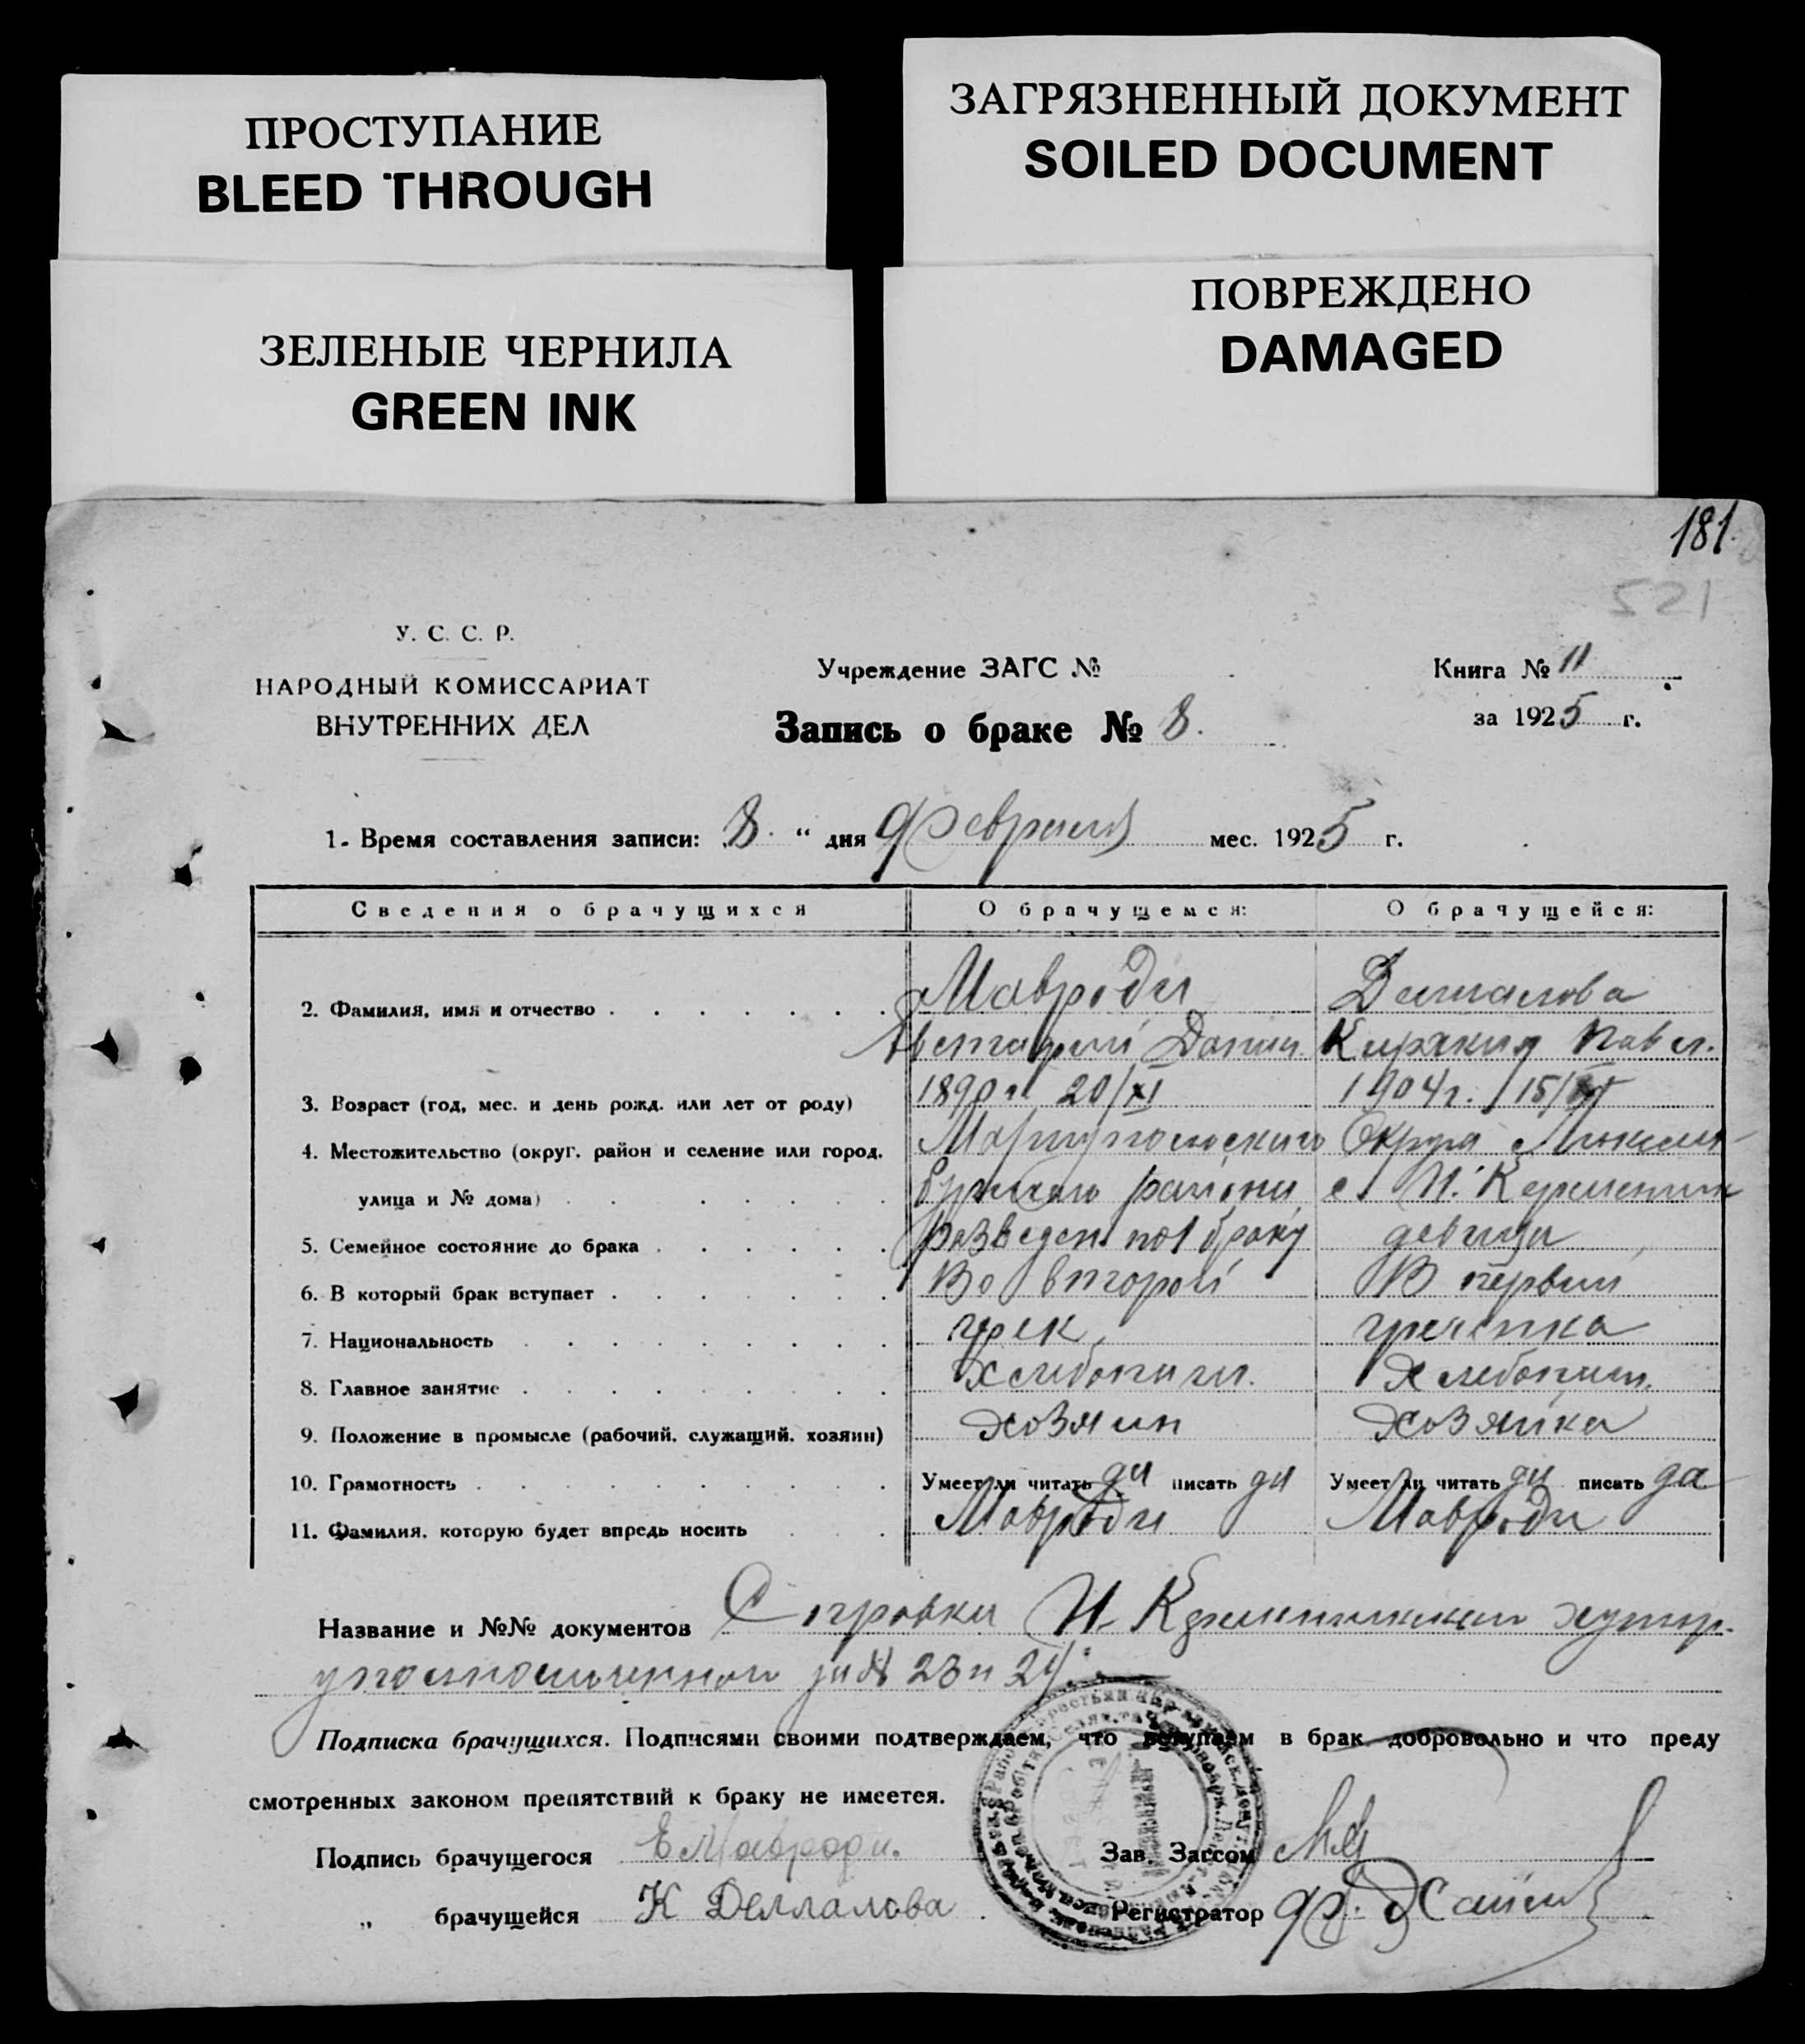 ПРОСТУПАНИЕ
BLEED THROUGH
ЗАГРЯЗНЕННЫЙ ДОКУМЕНТ
SOILED DOCUMENT
ЗЕЛЕНЫЕ ЧЕРНИЛА
GREEN INK
ПОВРЕЖДЕНО
DAMAGED
181
521
У. С. С. Р.
НАРОДНЫЙ КОМИССАРИАТ
ВНУТРЕННИХ ДЕЛ
Учреждение ЗАГС №
Запись о браке № 8.
Книга № 11
за 1925 г.
1. Время составления записи: 8 " дня Февраля мес. 1925 г.
Сведения о брачущихся О брачущемся: О брачущейся:
2. Фамилия, имя и отчество Мавроди
Кирякия Павл.
3. Возраст (год, мес. и день рожд. или лет от роду) 1890 г 20/XI 1904 г. 15/
4. Местожительство (округ, район и селение или город, Мариупольского Округа
улица и № дома) района с. Н. Керменчик
5. Семейное состояние до брака Разведен по 1 браку девица
6. В который брак вступает Во второй В первый
7. Национальность грек гречанка
8. Главное занятие Хлебопаш. Хлебопаш.
9. Положение в промысле (рабочий, служащий, хозяин) Хозяин Хозяйка
10. Грамотность Умеет ли читать да писать да Умеет ли читать да писать да
11. Фамилия, которую будет впредь носить Мавроди Мавроди
Название и №№ документов Справки Н-
уполномоченного за № 23 и 24.
Подписка брачущихся. Подписями своими подтверждаем, что вступаем в брак добровольно и что преду
смотренных законом препятствий к браку не имеется.
Подпись брачущегося Е Мавроди. Зав. Загсом
„ брачущейся К Деллалова Регистратор